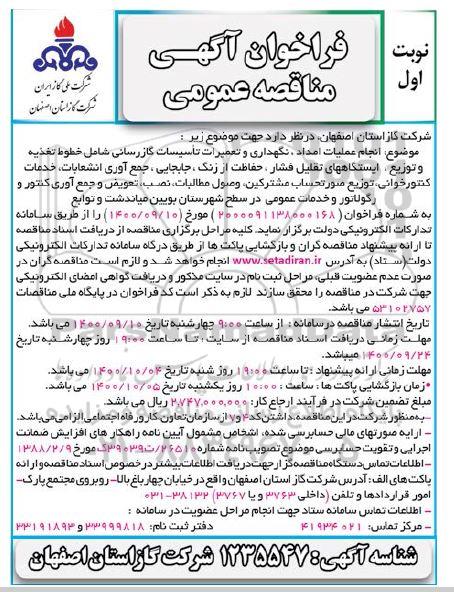 نوبت
اول
فراخوان آگهی
مناقصه عمومی
شرکت ملی گاز ایران
شرکت گاز استان اصفهان
شرکت گاز استان اصفهان، در نظر دارد جهت موضوع زیر :
موضوع: انجام عملیات امداد، نگهداری و تعمیرات تأسیسات گازرسانی شامل خطوط تغذیه
و توزیع، ایستگاههای تقلیل فشار، حفاظت از زنگ، جابجایی، جمع آوری انشعابات، خدمات
کنتورخوانی، توزیع صورتحساب مشترکین، وصول مطالبات، نصب، تعویض و جمع آوری کنتور و
رگولاتور و خدمات عمومی در سطح شهرستان بویین میاندشت و توابع
به شماره فراخوان (۲۰۰۰۰۹۱۱۳۸۰۰۰۱۶۸) مورخ (۱۴۰۰/۰۹/۱۰) را از طریق سامانه
تدارکات الکترونیکی دولت برگزار نماید. کلیه مراحل برگزاری مناقصه از دریافت اسناد مناقصه
تا ارائه پیشنهاد مناقصه گران و بازگشایی پاکت ها از طریق درگاه سامانه تدارکات الکترونیکی
دولت (ستاد) به آدرس www.setadiran.ir انجام خواهد شد و لازم است مناقصه گران در
صورت عدم عضویت قبلی، مراحل ثبت نام در سایت مذکور و دریافت گواهی امضای الکترونیکی
جهت شرکت در مناقصه را محقق سازند لازم به ذکر است کد فراخوان در پایگاه ملی مناقصات
۵۳۱۰۲۷۵۷ می باشد.
تاریخ انتشار مناقصه در سامانه : از ساعت ۹:۰۰ چهارشنبه تاریخ ۱۴۰۰/۰۹/۱۰ می باشد.
مهلت زمانی دریافت اسناد مناقصه از سایت : تا ساعت ۱۹:۰۰ روز چهارشنبه تاریخ
۱۴۰۰/۰۹/۲۴ میباشد.
مهلت زمانی ارائه پیشنهاد : تا ساعت ۱۹:۰۰ روز شنبه تاریخ ۱۴۰۰/۱۰/۰۴ می باشد.
*زمان بازگشایی پاکت ها : ساعت ۱۰:۰۰ روز یکشنبه تاریخ ۱۴۰۰/۱۰/۰۵ می باشد.
مبلغ تضمین شرکت در فرآیند ارجاع کار: ۲,۷۴۷,۰۰۰,۰۰۰ ریال می باشد.
- به منظور شرکت در این مناقصه، داشتن کد ۴ و ۷ از سازمان تعاون کار و رفاه اجتماعی الزامی می باشد.
- ارایه صورتهای مالی حسابرسی شده، اشخاص مشمول آیین نامه راهکار های افزایش ضمانت
اجرایی و تقویت حسابرسی موضوع تصویب نامه شماره ۲۶۵۱۰/ت۳۹۰۳۹ک مورخ ۱۳۸۸/۲/۹
- اطلاعات تماس دستگاه مناقصه گزار جهت دریافت اطلاعات بیشتر در خصوص اسناد مناقصه و ارائه
پاکت های الف: آدرس شرکت گاز استان اصفهان واقع در خیابان چهارباغ بالا- روبروی مجتمع پارک-
امور قراردادها و تلفن (داخلی ۳۷۶۳ و یا ۳۷۶۷) ۳۸۱۳۲-۰۳۱
- اطلاعات تماس سامانه ستاد جهت انجام مراحل عضویت در سامانه :
- مرکز تماس: ۰۲۱ ۴۱۹۳۴ دفتر ثبت نام: ۳۳۹۹۹۸۱۸ و ۳۳۱۹۱۸۹۳
شناسه آگهی : ۱۲۳۵۵۴۷ شرکت گاز استان اصفهان